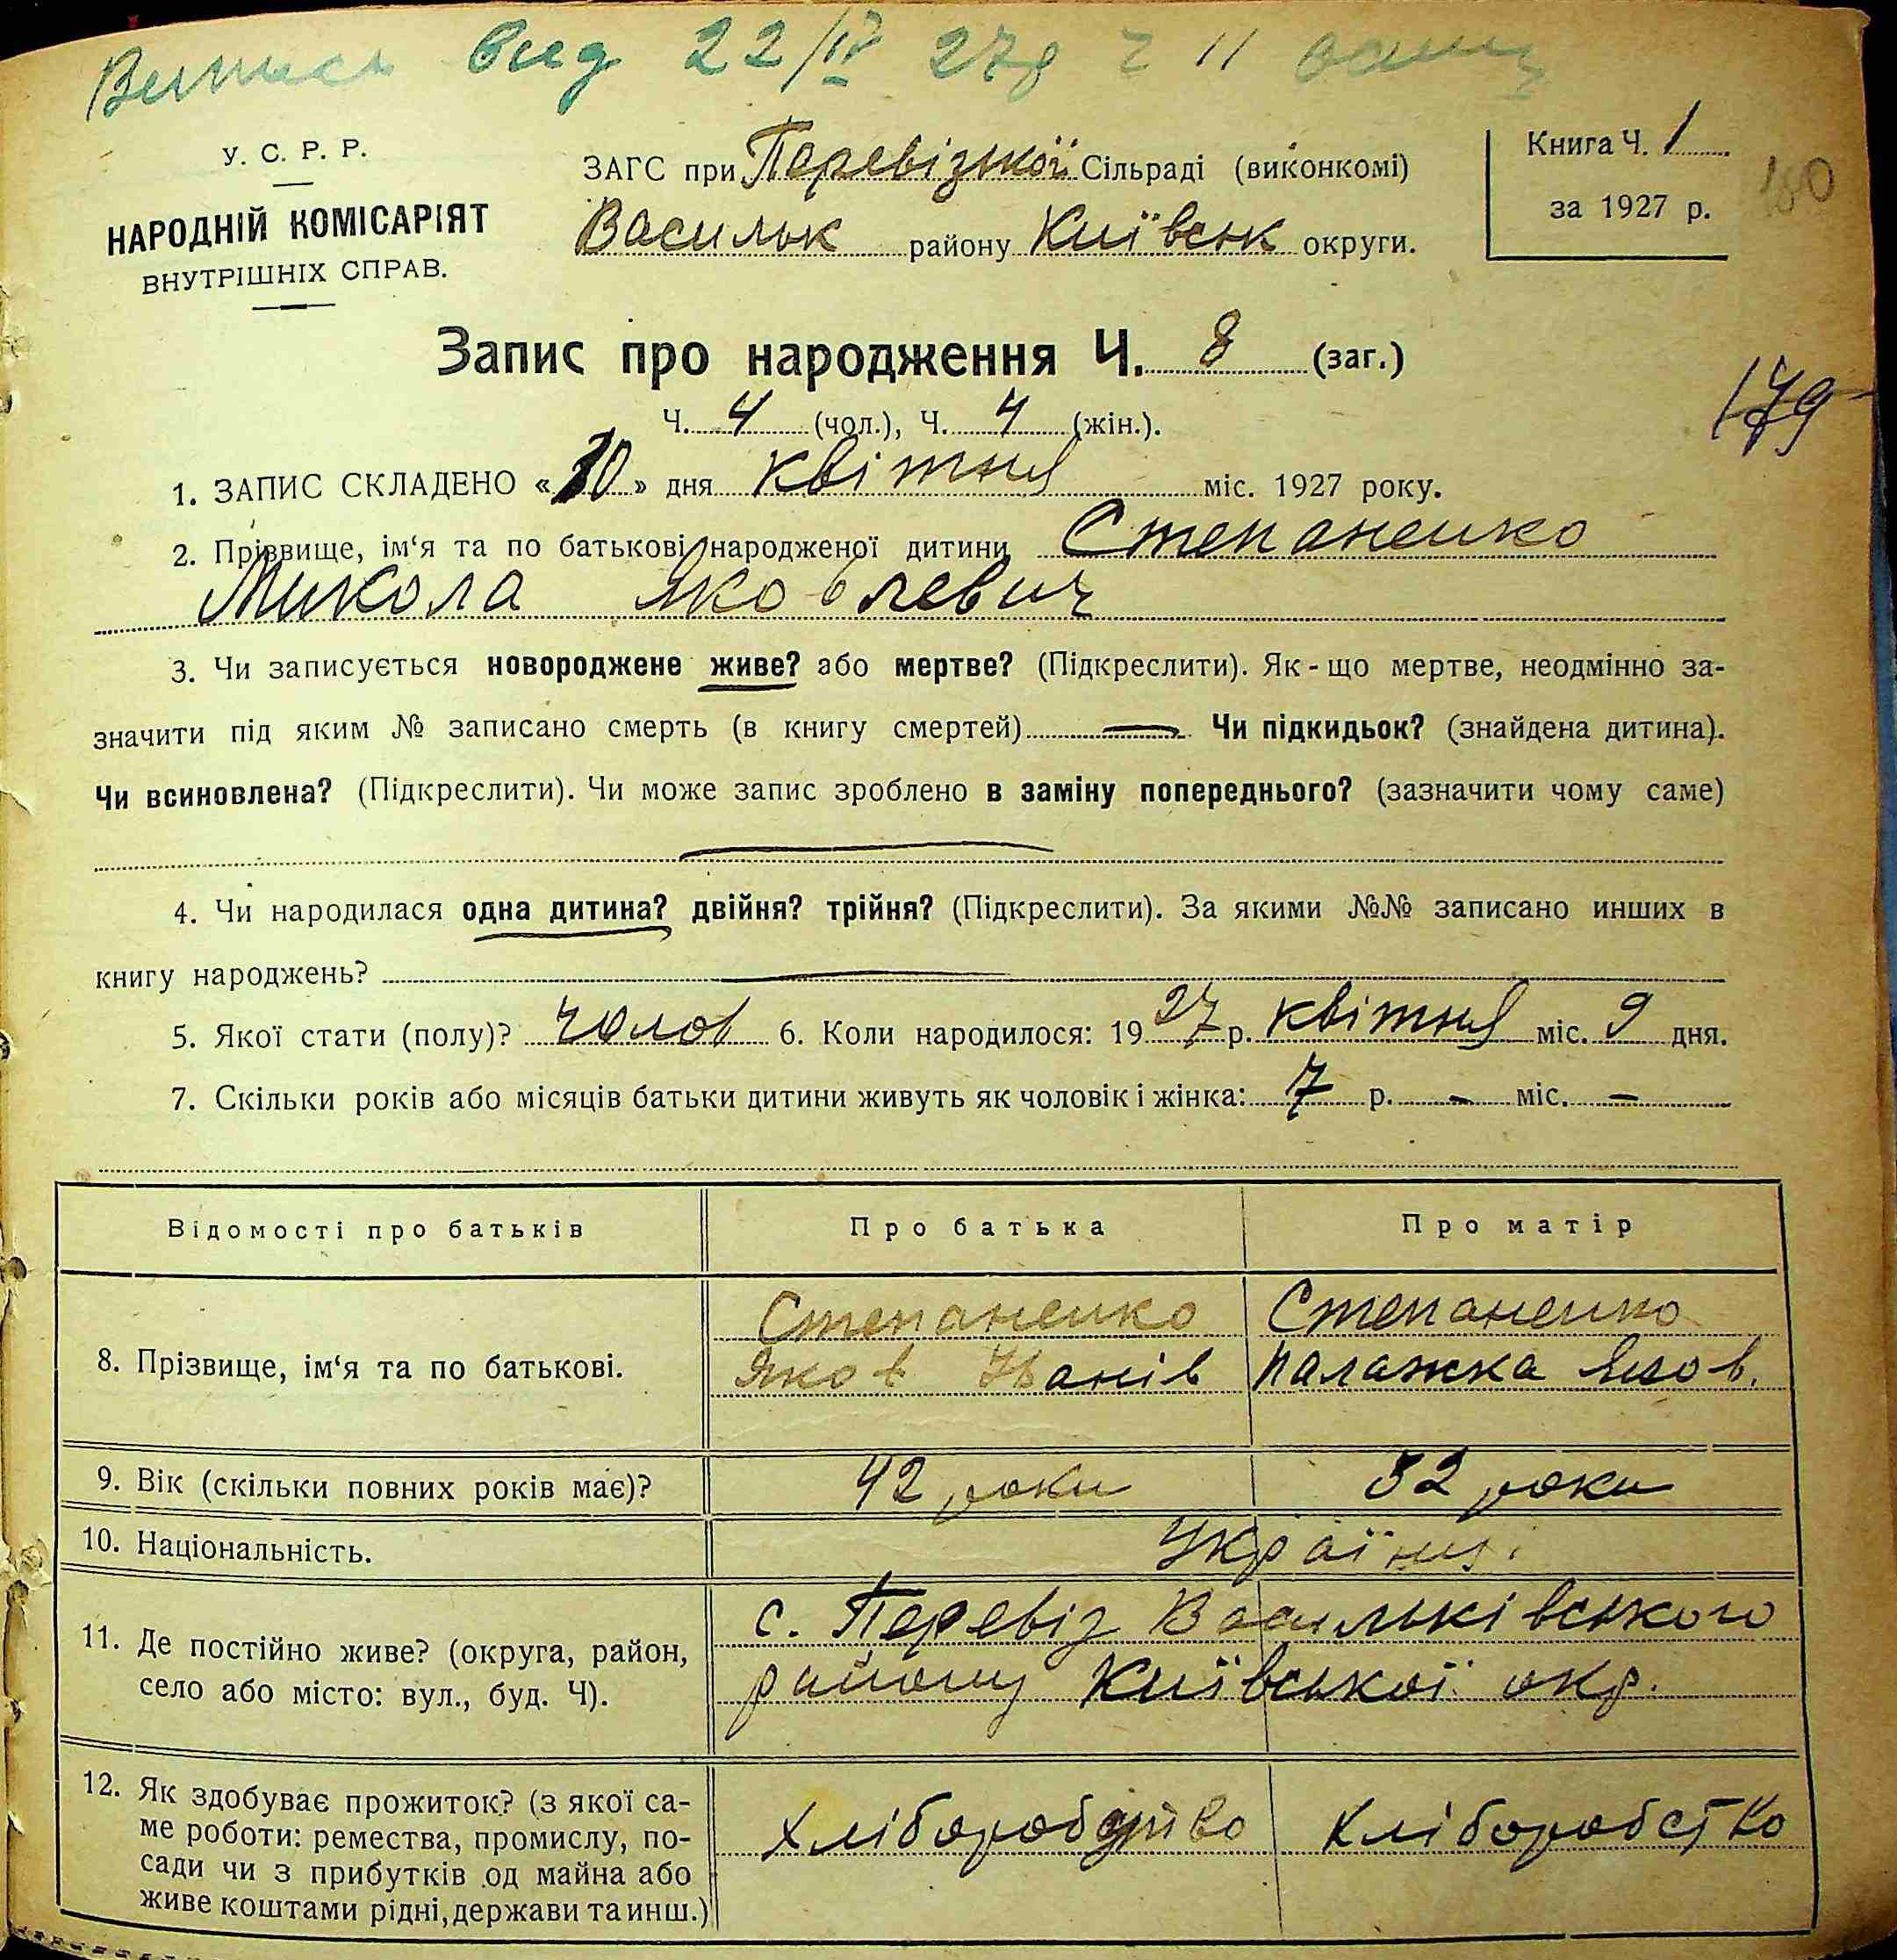 Випись вид 22/IV 27р
У. С. Р. Р.
НАРОДНІЙ КОМІСАРІЯТ
ВНУТРІШНІХ СПРАВ.
ЗАГС при Перевізької Сільраді (виконкомі)
Васильк району Київськ округи.
Книга Ч. 1
за 1927 р.
Запис про народження Ч. 8 (заг.)
179
Ч. 4 (чол.), Ч. 4 (жін.).
1. ЗАПИС СКЛАДЕНО «10» дня квітня міс. 1927 року.
2. Прізвище, ім‘я та по батькові народженої дитини Степаненко
Микола Яковлевич
3. Чи записується новороджене живе? або мертве? (Підкреслити). Як-що мертве, неодмінно за-
значити під яким № записано смерть (в книгу смертей) — Чи підкидьок? (знайдена дитина).
Чи всиновлена? (Підкреслити). Чи може запис зроблено в заміну попереднього? (зазначити чому саме)
—
4. Чи народилася одна дитина? двійня? трійня? (Підкреслити). За якими №№ записано инших в
книгу народжень? —
5. Якої стати (полу)? чолов 6. Коли народилося: 1927 р. квітня міс. 9 дня.
7. Скільки років або місяців батьки дитини живуть як чоловік і жінка: 7 р. - міс. -
Відомості про батьків Про батька Про матір
8. Прізвище, ім‘я та по батькові.
Степаненко
Яков Іванів
Степаненко
Палажка Яков.
9. Вік (скільки повних років має)? 42 роки 32 роки
10. Національність. Українці
11. Де постійно живе? (округа, район,
село або місто: вул., буд. Ч).
с. Перевіз Васильківського
району Київської окр.
12. Як здобуває прожиток? (з якої са-
ме роботи: ремества, промислу, по-
сади чи з прибутків од майна або
живе коштами рідні, держави та инш.)
Хліборобство Хліборобство